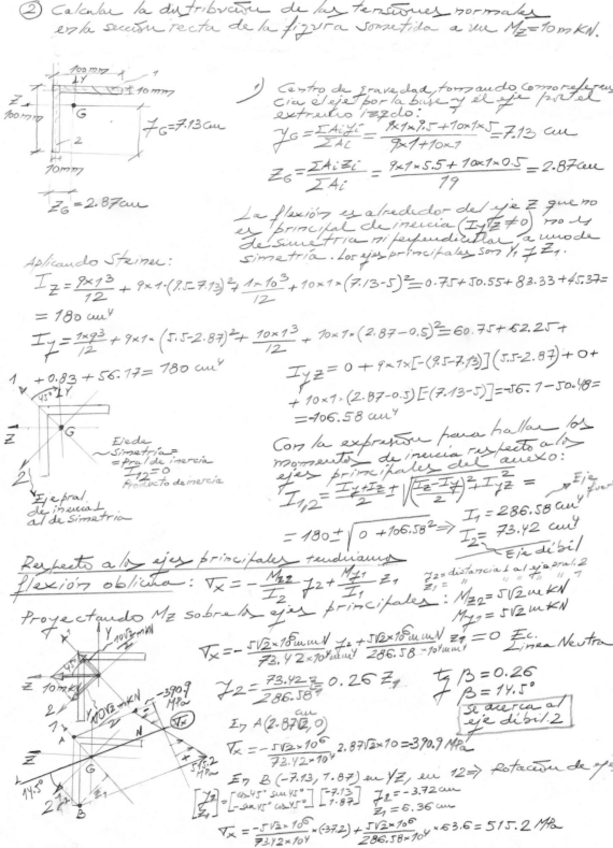 ② Calcular la distribución de las tensiones normales
en la sección recta de la figura sometida a un Mz=10mKN.
100mm
1
10mm
Y
Z
G
100mm
2
10mm
y_G=7.13 cm
Z_G=2.87cm
1) Centro de gravedad, tomando como referen
cia el eje por la base y el eje por el
extremo izqdo:
y_G = ΣAiyi/ΣAi = (9x1x9.5+10x1x5)/(9x1+10x1) = 7.13 cm
Z_G = ΣAizi/ΣAi = (9x1x5.5+10x1x0.5)/19 = 2.87cm
La flexión es alrededor del eje Z que no
es principal de inercia (Iyz≠0) no es
de simetría ni perpendicular a uno de
simetría. Los ejes principales son 1 y 2.
Aplicando Steiner:
Iz = 9x1³/12 + 9x1·(9.5-7.13)² + 1x10³/12 + 10x1x(7.13-5)² = 0.75+50.55+83.33+45.37=
= 180 cm⁴
Iy = 1x9³/12 + 9x1·(5.5-2.87)² + 10x1³/12 + 10x1·(2.87-0.5)² = 60.75+62.25+
+0.83+56.17= 180 cm⁴
Iyz = 0 + 9x1x[-(9.5-7.13)](5.5-2.87)+0+
+10x1·(2.87-0.5)[-(7.13-5)]=-56.1-50.48=
=-106.58 cm⁴
1
45°
Y
Z
G
2
Eje de
Simetría=
=Pral de inercia
I12=0
Producto de inercia
Eje pral
de inercia ⊥
al de Simetría
Con la expresión para hallar los
momentos de inercia respecto a los
ejes principales del anexo:
I1,2 = (Iy+Iz)/2 ± √((Iz-Iy)/2)²+Iyz² =
= 180 ± √0+106.58² ⇒ I1 = 286.58 cm⁴
I2 = 73.42 cm⁴
Eje
Eje débil
Respecto a los ejes principales tendríamos
flexión oblicua: σx = - Mz2/I2 y2 + My1/I1 z1
y2=distancia ⊥ al eje pral. 2
z1 = " " " " " 1
Proyectando Mz sobre los ejes principales: Mz2=5√2 mKN
My1=5√2 mKN
σx = - 5√2x10⁶mmN/73.42x10⁴mm⁴ y2 + 5√2x10⁶mmN/286.58·10⁴mm⁴ z1 = 0 Ec.
Línea Neutra
y2 = 73.42/286.58 z1 = 0.26 z1
tg β = 0.26
β = 14.5°
se acerca al
eje débil 2
En A (2.87√2,0) cm
σx = - 5√2x10⁶/73.42x10⁴ 2.87√2x10 =-390.9 MPa
En B (-7.13, 1.87) en YZ, en 12 ⇒ Rotación de ejes
[y2 z1] = [cos45° sen45° -sen45° cos45°] [-7.13 1.87] y2 = -3.72 cm
z1 = 6.36 cm
σx = -5√2x10⁶/73.42x10⁴ x(-37.2) + 5√2x10⁶/286.58x10⁴ x63.6 = 515.2 MPa
Y
Z
10mKN
1
2
-390.9
MPa
σx
A
N
G
Z
14.5°
2
B
z1
515.2
MPa